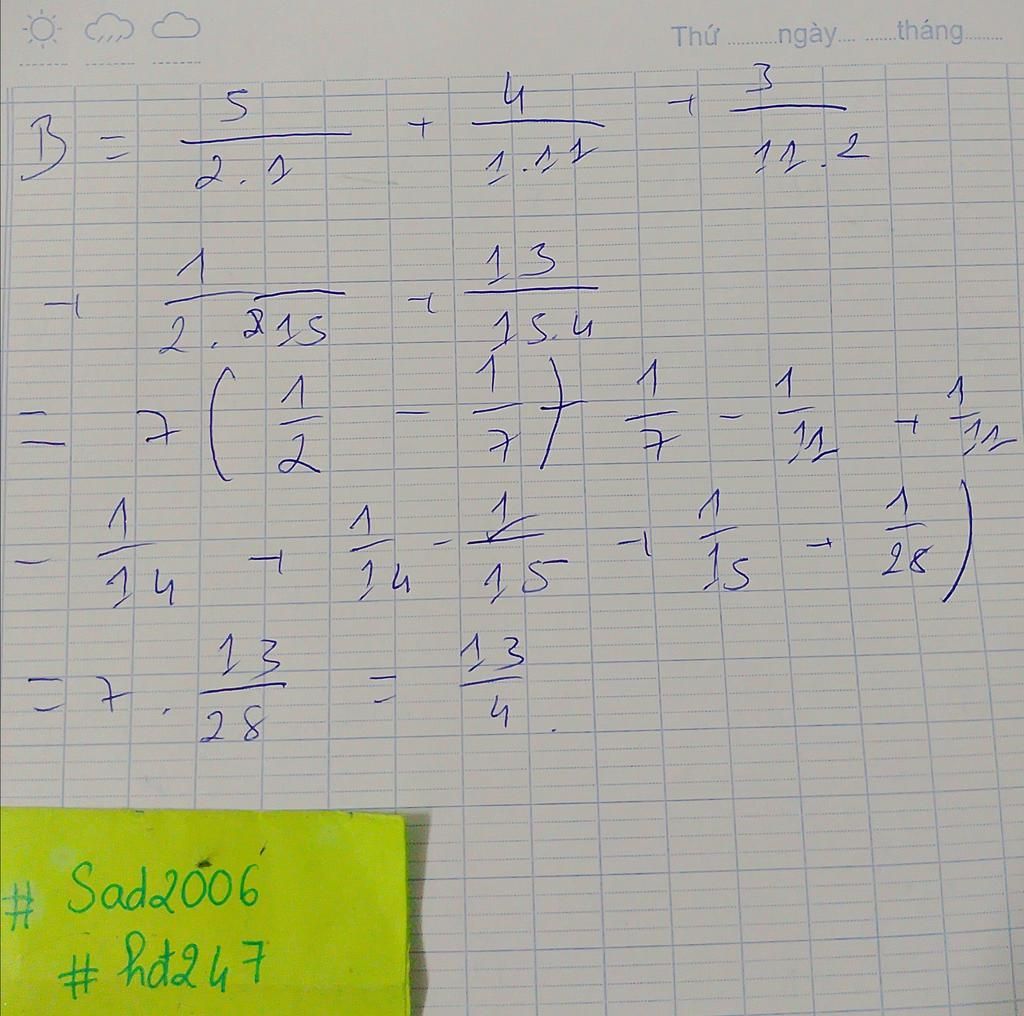 Thứ ..........ngày.... ......tháng........
B = 5/(2.1) + 4/(1.11) + 3/(11.2)
+ 1/(2.15) + 13/(15.4)
= 7 ( 1/2 - 1/7 ) + 1/7 - 1/11 + 1/11
- 1/14 + 1/14 - 1/15 + 1/15 + 1/28 )
= 7 . 13/28 = 13/4 .
# Sad2006
# hđ247